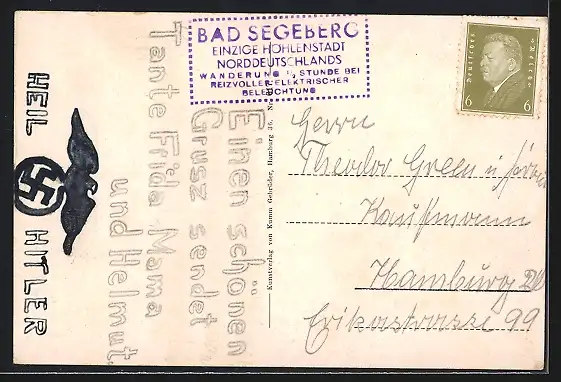 BAD SEGEBERG
EINZIGE HÖHLENSTADT
NORDDEUTSCHLANDS
WANDERUNG ½ STUNDE BEI
REIZVOLLER ELEKTRISCHER
BELEUCHTUNG
6 6
HEIL HITLER
Einen schönen
Grusz sendet
Tante Frida Mama
und Helmut.
Kunstverlag von Kumm Gebrüder, Hamburg 36.
Herrn
Theodor Green u.
Kaufmann
Hamburg
Erikastrasse 99